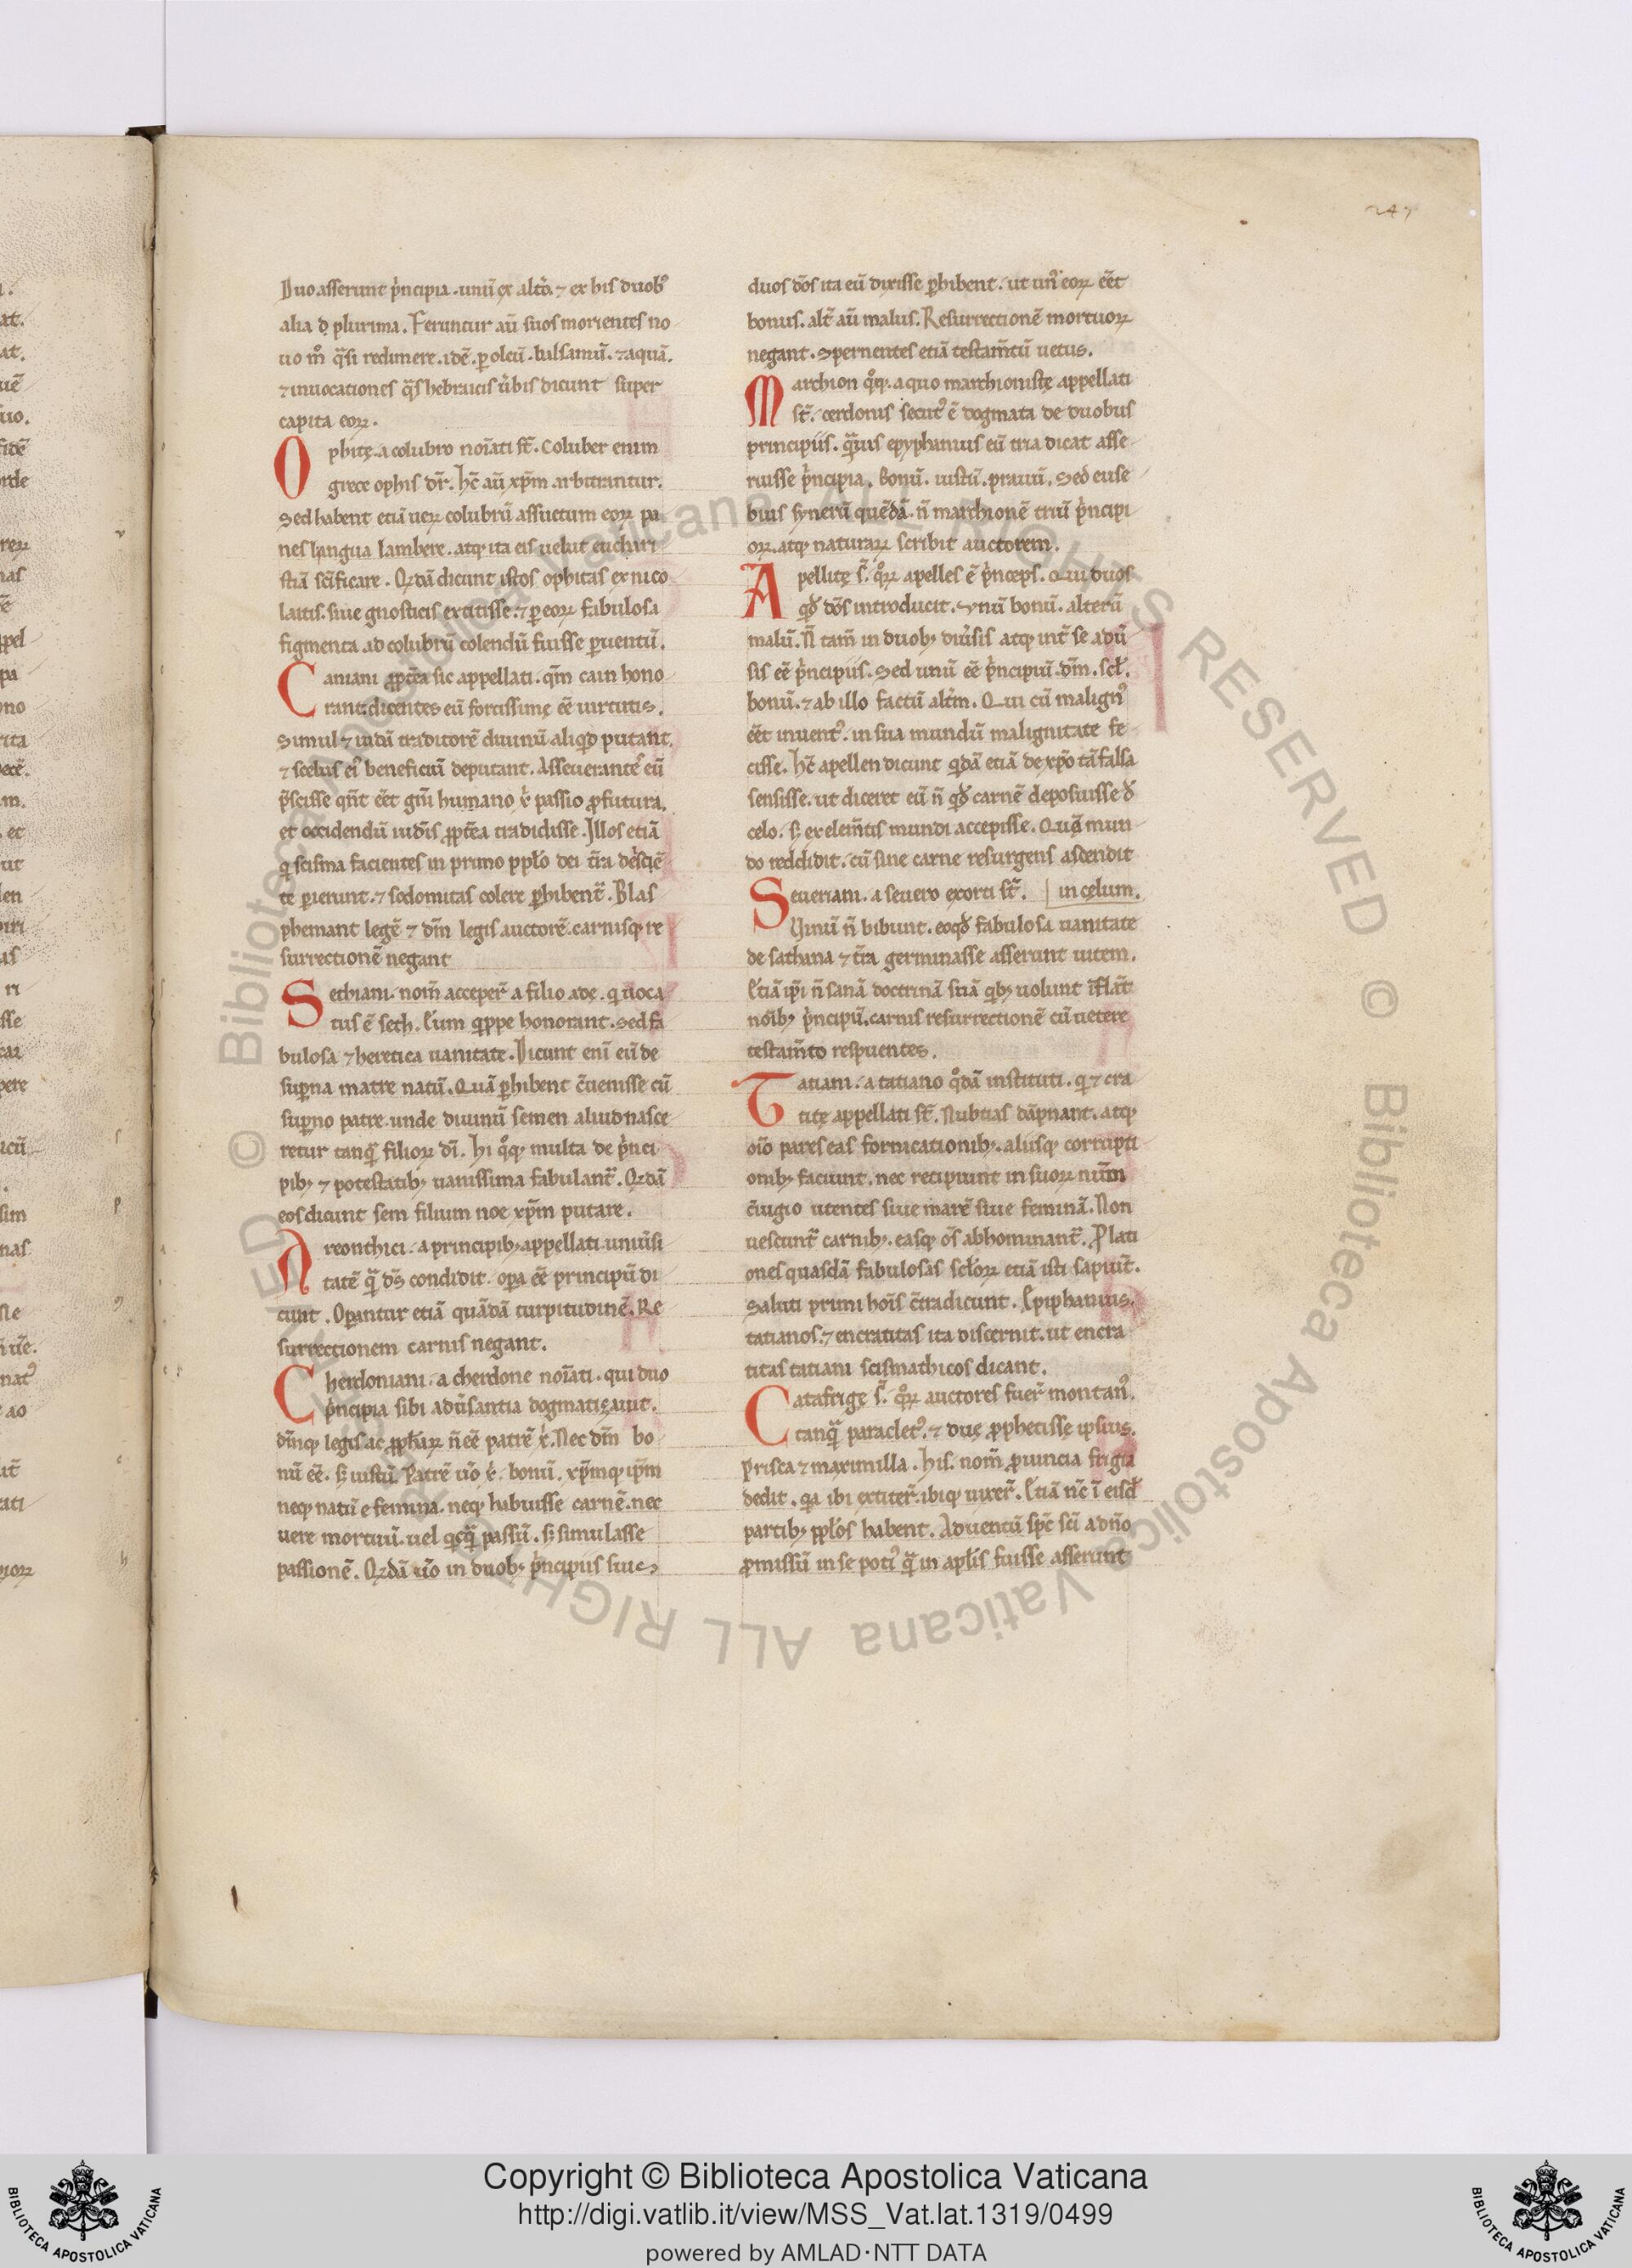 247
Duo asserunt p̾ncipia. unū ex alt̾o. ⁊ ex his duobꝰ
alia ꝙ plurima. Feruntur aū suos morientes no
uo mͦ q̄si redimere. idē. ꝑ oleū. balsamū. ⁊ aquā.
⁊ inuocationes q̄s hebraicis u̾bis dicunt super
capita eoꝝ.
Ophitę. a colubro noīati st̄. Coluber enim
grece ophis dr̄. hc̄ aū xp̄m arbitrantur.
Sed habent etiā ueꝝ colubrū assuetum eoꝝ pa
nes langua lambere. atqꝫ ita eis uelut euchari
stiā sc̄ificare. Qꝛdā dicunt istos ophitas ex nico
laitis. siue gnosticis extitisse. ⁊ ꝑ eoꝝ fabulosa
figmenta ad colubrū colendū fuisse ꝑuentū.
Caniani ꝓpt̄ea sic appellati. qm̄ cain hono
rant. dicentes eū fortissimę eē uirtutis.
Simul ⁊ iudā traditorē diuinū aliqͩ putant.
⁊ scelus eiꝰ beneficiū deputant. Asseuerantes eū
p̄scisse qn̄t eēt gn̄i humano x̄ passio ꝓfutura.
et occidendū iudeis ꝓpt̄ea tradidisse. Illos etiā
q scisma facientes in primo pp̄lo dei t̄ra dehiscē
te perierunt. ⁊ sodomitas colere ꝑhibent᷑. Blas
phemant legē ⁊ dm̄ legis auctorē. carnisqꝫ re
surrectionē negant
Sethiani. nom̄ acceper̄ a filio adę. q uoca
tus ē seth. Eum qꝑpe honorant. sed fa
bulosa ⁊ heretica uanitate. Dicunt eni eū de
suꝑna matre natū. Quā ꝑhibent ꝯuenisse cū
suꝑno patre. unde diuinū semen aliud nasce
retur tanq̄ filioꝝ dī. hi qͦqꝫ multa de p̾nci
pibꝫ ⁊ potestatibꝫ uanissima fabulant᷑. Qꝛdā
eos dicunt sem filium noe xp̄m putare.
Arconthici. a principibꝫ appellati. uniu̾si
tatē q̄ ds̄ condidit. oꝑa eē principū di
cunt. Oꝑantur etiā quādā turpitudinē. Re
surrectionem carnis negant.
Cherdoniani. a cherdone noīati. qui duo
p̾ncipia sibi adu̾santia dogmatiȥauit.
dm̄qꝫ legis ac ꝓph̄aꝝ n̄ eē patrē x̄. Nec dm̄ bo
nū eē. sꝫ iustū. Patrē u̾o x̄. bonū. xp̄mqꝫ ip̄m
neqꝫ natū e femina. neqꝫ habuisse carnē. nec
uere mortuū. uel qcq̄ passū. sꝫ simulasse
passionē. Qꝛdā u̾o in duobꝫ p̾ncipiis siue
duos dō̄s ita eū dixisse ꝑhibent. ut unꝰ eoꝝ eēt
bonus. alt̄ aū malus. Resurrectionē mortuoꝝ
negant. spernentes etiā testam̄tū uetus.
Marchion qͦqꝫ. a quo marchionistę appellati
st̄. cerdonis secutꝰ ē dogmata de duobus
principiis. q̄uis epyphanius eū tria dicat asse
ruisse p̾ncipia. bonū. iustū. prauū. Sed euse
bius synerū quēdā. n̄ marchionē triū p̾ncipi
oꝝ. atqꝫ naturaꝝ scribit auctorem.
Apellitę s̄. qͦꝝ apelles ē p̾nceps. Qui duos
qͩ dō̄s introducit. Vnū bonū. alterū
malū. N̄ tam̄ in duobꝫ diu̾sis atqꝫ int̄ se adu̾
sis eē p̾ncipiis. Sed unū eē p̾ncipiū. dm̄. scł.
bonū. ⁊ ab illo factū alt̾m. Qui cū malignꝰ
eēt inuentꝰ. in sua mundū malignitate fe
cisse. hc̄ apellen dicunt qdā etiā de xp̄o tā falsa
sensisse. ut diceret eū n̄ qͩ carnē deposuisse d
celo. sꝫ ex elem̄tis mundi accepisse. Quā mun
do reddidit. cū sine carne resurgens ascendit
Seueriani. a seuero exorti st̄. in cęlum.
Vinū n̄ bibunt. eoqͩ fabulosa uanitate
de sathana ⁊ t̄ra germinasse asserunt uitem.
Etiā ip̄i n̄ sanā doctrinā suā qbꝫ uolunt īflāt
noībꝫ p̾ncipū. carnis resurrectionē cū uetere
testam̄to respuentes.
Tatiani. a tatiano qͦdā instituti. q ⁊ cra
titę appellati st̄. Nubtias dāpnant. atqꝫ
oīo pares eas fornicationibꝫ. aliisqꝫ corrupti
onibꝫ faciunt. nec recipiunt in suoꝝ num̄
ꝯiugio utentes siue marē siue feminā. Non
uescunt᷑ carnibꝫ. easqꝫ oēs abhominant᷑. Plati
ones quasdā fabulosas scłoꝝ etiā isti sapiūt.
Saluti primi hoīs ꝯtradicunt. Epiphanius.
tatianos. ⁊ encratitas ita discernit. ut encra
titas tatiani scismathicos dicant.
Catafrigę s̄. qͦꝝ auctores fuer̄ montanꝰ.
tanq̄ paracletꝰ. ⁊ duę ꝓphetissę ipsius.
prisca ⁊ maximilla. his. nom̄ ꝓuincia frigia
dedit. qa ibi extiter̄. ibiqꝫ uixer̄. Etiā nc̄ ī eisd
partibꝫ pp̄los habent. Aduentū sp̄c sc̄i a dn̄o
ꝓmissū in se potiꝰ q̄ in apl̄is fuisse asserunt
Copyright © Biblioteca Apostolica Vaticana
http://digi.vatlib.it/view/MSS_Vat.lat.1319/0499
powered by AMLAD·NTT DATA
BIBLIOTECA APOSTOLICA VATICANA
BIBLIOTECA APOSTOLICA VATICANA
© Biblioteca Apostolica Vaticana ALL RIGHTS RESERVED © Biblioteca Apostolica Vaticana ALL RIGHTS RESERVED